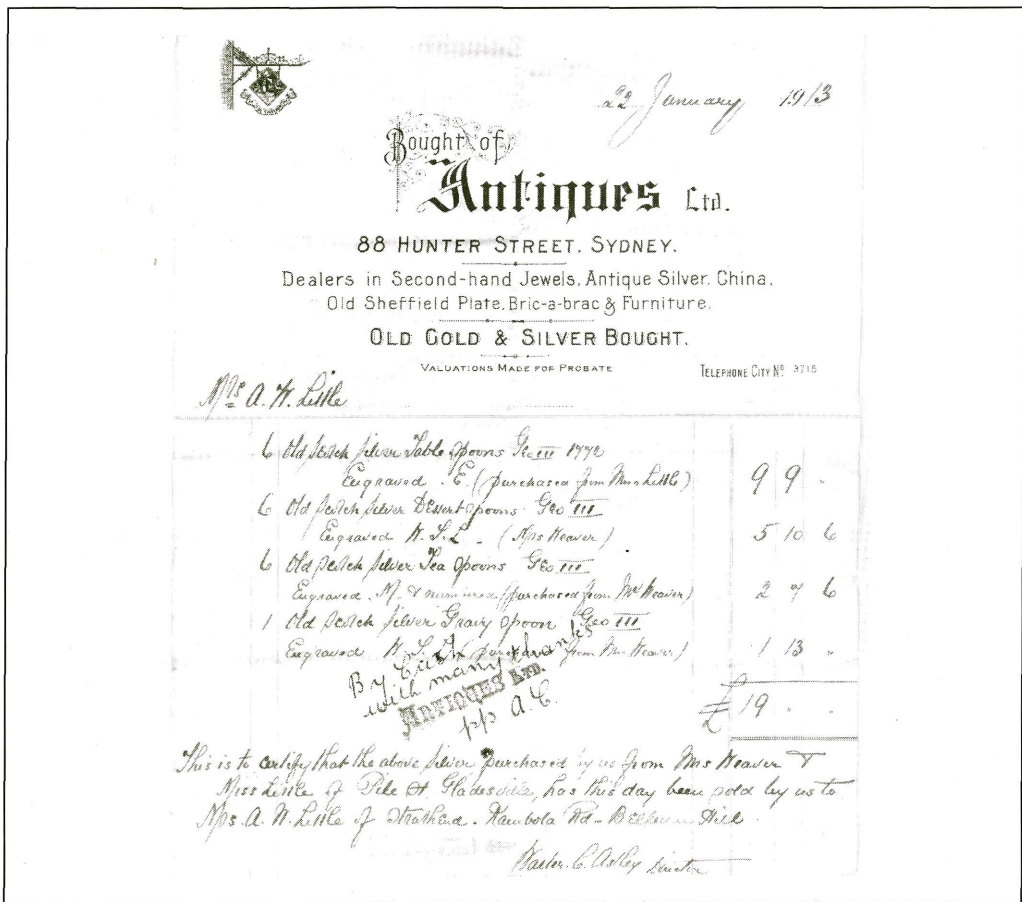 22 January 1913
Bought of
Antiques Ltd.
88 HUNTER STREET. SYDNEY.
Dealers in Second-hand Jewels, Antique Silver. China,
Old Sheffield Plate, Bric-a-brac & Furniture,
OLD GOLD & SILVER BOUGHT.
VALUATIONS MADE FOR PROBATE
TELEPHONE CITY No 3715
Mrs A. W. Little
6 Old Scotch Silver Table Spoons Geo III 1772
Engraved . E. (purchased from Miss Little) 9 9 "
6 Old Scotch Silver Dessert Spoons Geo III
Engraved W. S. L. - (Mrs Weaver) 5 10 6
6 Old Scotch Silver Tea Spoons Geo III
Engraved . M. & numbered (purchased from Mrs Weaver) 2 7 6
1 Old Scotch Silver Gravy Spoon Geo III
Engraved W. S. L. (purchased from Mrs Weaver) 1 13 "
By Cash
with many thanks
ANTIQUES LTD.
pp A.C.
£ 19 " "
This is to certify that the above Silver purchased by us from Mrs Weaver &
Miss Little of Pile St Gladesville, has this day been sold by us to
Mrs. A. W. Little of Rd - Bellevue Hill
Walter. C. Astley Director